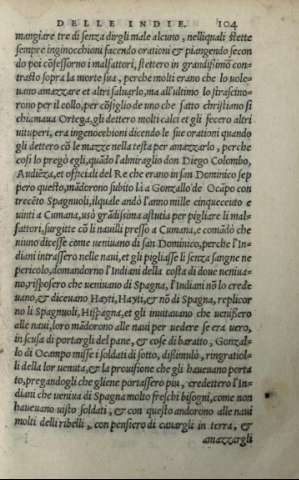 DELLE INDIE. 104
mangiare tre dì senza dirgli male alcuno, nelliquali stette
sempre inginocchioni facendo orationi & piangendo secon
do poi cōfessorno i malfattori, stettero in grandissimō con-
trasto sopra la morte sua, perche molti erano che lo uole-
uano amazzare et altri saluarlo, ma all'ultimo lo strascino-
rono per il collo, per cōsiglio de uno che fatto christiano si
chiamaua Ortega, gli dettero molti calci et gli fecero altri
uituperi, era ingenocchioni dicendo le sue orationi quando
gli dettero cō le mazze nella testa per amazzarlo, perche
cosi lo pregò egli, quādo l'almiraglio don Diego Colombo,
Audiēza, et officiali del Re che erano in san Dominico sep
pero questo, mādorono subito là a Gonzallo de Ocāpo con
trecēto Spagnuoli, ilquale andò l'anno mille cinquecento e
uinti a Cumana, usò grādissima astutia per pigliare li mal-
fattori, surgitte cō li nauilli presso a Cumana, e comādò che
niuno dicesse come ueniuano di san Dominico, perche l'In-
diani intrassero nelle naui, et gli pigliasse li senza sangne ne
pericolo, domandorno l'Indiani della costa di doue ueniua-
no, risposero che ueniuano di Spagna, l'Indiani nō lo crede
uano, & diceuano Hayti, Hayti, & nō di Spagna, replicor
no li Spagnuoli, Hispagna, et gli inuitauano che uenissero
alle naui, loro mādorono alle naui per uedere se era uero,
in scusa di portargli del pane, & cose di baratto, Gonzal-
lo di Ocampo misse i soldati di sotto, dissimulò, ringratiol-
li della lor uenuta, & la prouisione che gli haueuano porta
to, pregandogli che gliene portassero piu, credettero l'In-
diani che ueniua di Spagna molto freschi bisogni, come non
haueuano uisto soldati, & con questo andorono alle naui
molti delli ribelli, con pensiero di cauargli in terra, &
amazzargli